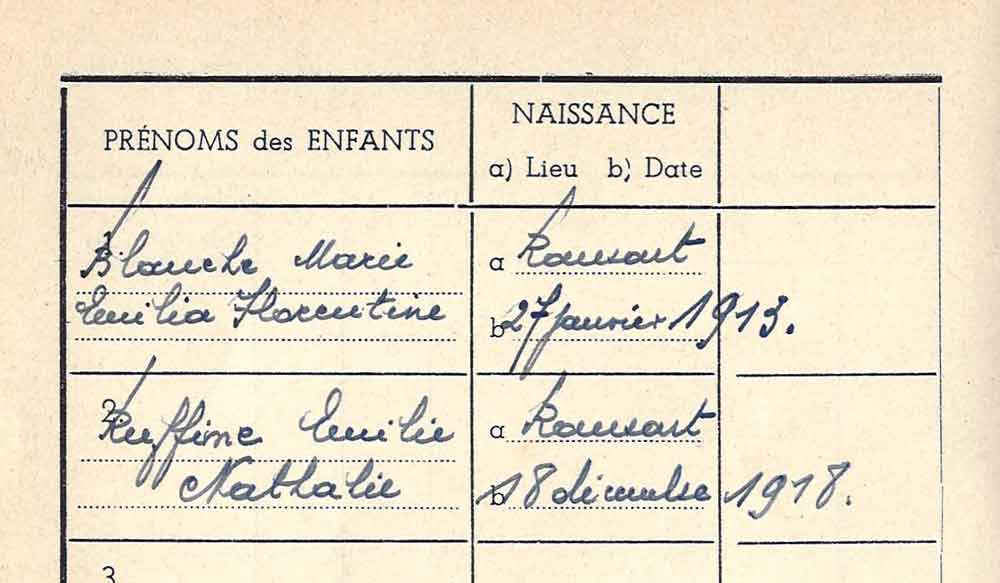 PRÉNOMS des ENFANTS
NAISSANCE
a) Lieu b) Date
1. Blanche Marie
Emilia Florentine
a Ransart
b 27 janvier 1913.
2. Ruffine Emilie
Nathalie
a Ransart
b 18 décembre 1918.
3